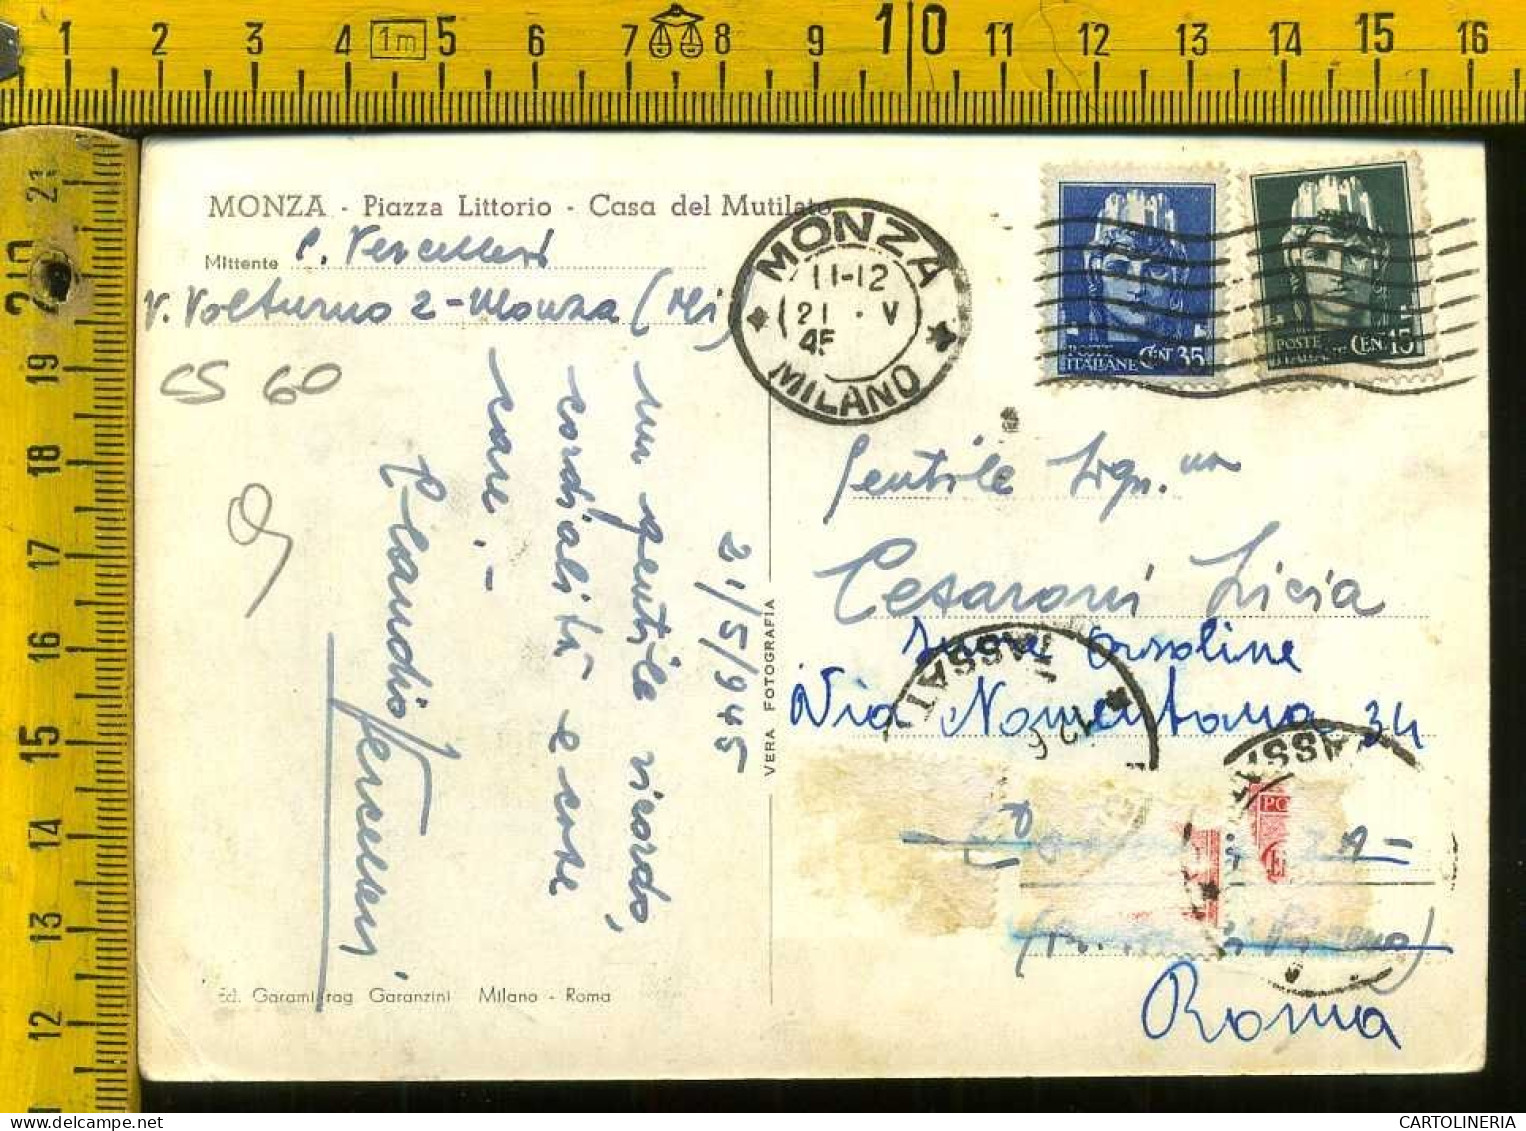 1 2 3 4 1m 5 6 7 8 9 10 11 12 13 14 15 16
21
20
19
18
17
16
15
14
13
12
MONZA - Piazza Littorio - Casa del Mutilato
Mittente C. Vercellesi
V. Volturno 2 - Monza (Mi)
CS 60
un gentile ricordo,
cordialità e cose
care. -
Claudio Vercellesi
21/5/945
VERA FOTOGRAFIA
Ed. Garami rag Garanzini Milano - Roma
MONZA
11-12
21 . V
45
MILANO
POSTE ITALIANE CEN. 35
POSTE ITALIANE CEN. 15
Gentile Sign.na
Cesaroni Licia
Suore Orsoline
Via Nomentana 34
TASSAT
12 6
Roma
CARTOLINERIA